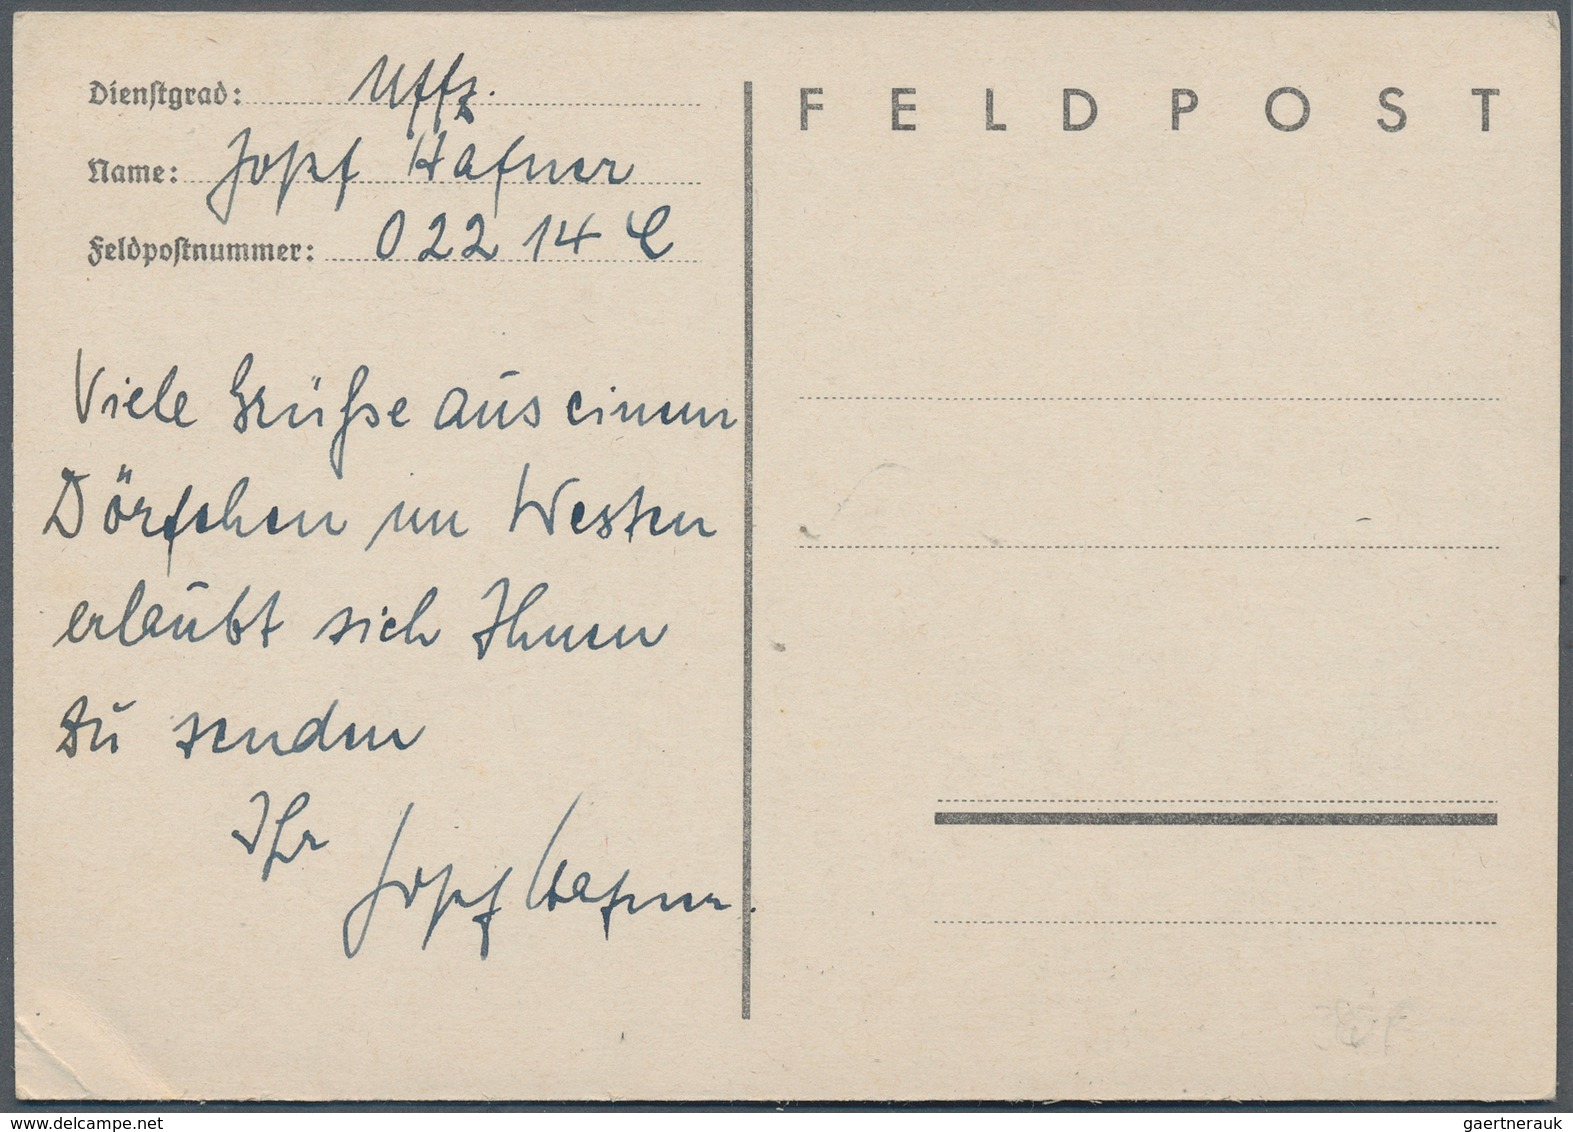 Dienstgrad: Uffz.
Name: Josef Hafner
Feldpostnummer: 02214 C
Viele Grüße aus einem
Dörfchen im Westen
erlaubt sich Ihnen
zu senden
Ihr
Josef Hafner.
FELDPOST
gaertnerauk